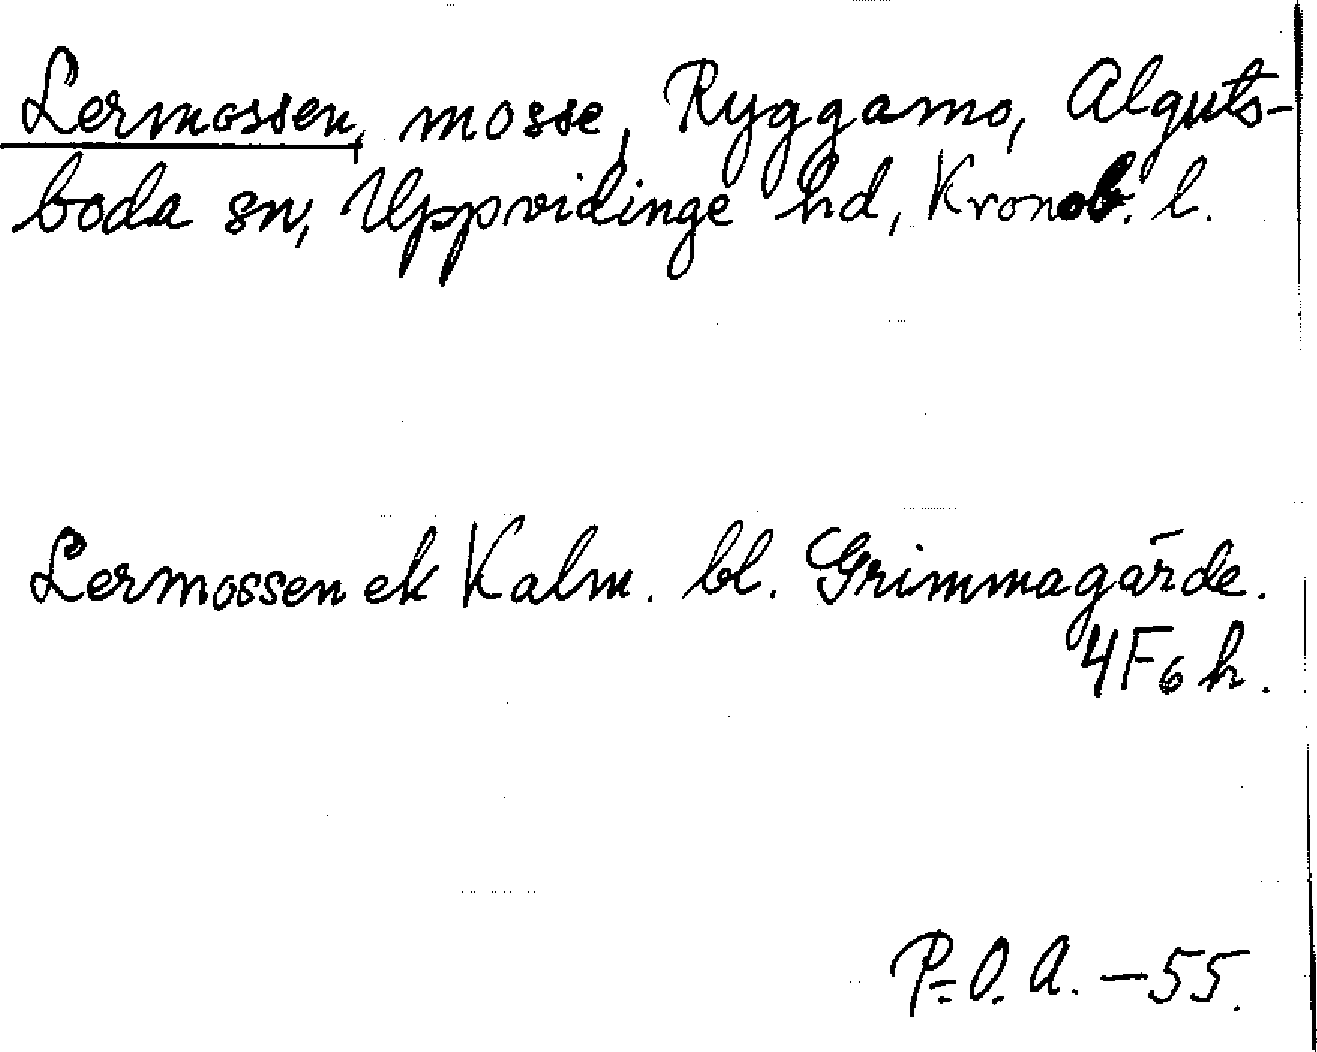 Lermossen, mosse, Ryggamo, Alguts-
boda sn, Uppvidinge hd, Kronob. l.
Lermossen ek Kalm. bl. Grimmagärde.
4F6h.
P-O. A. -55.